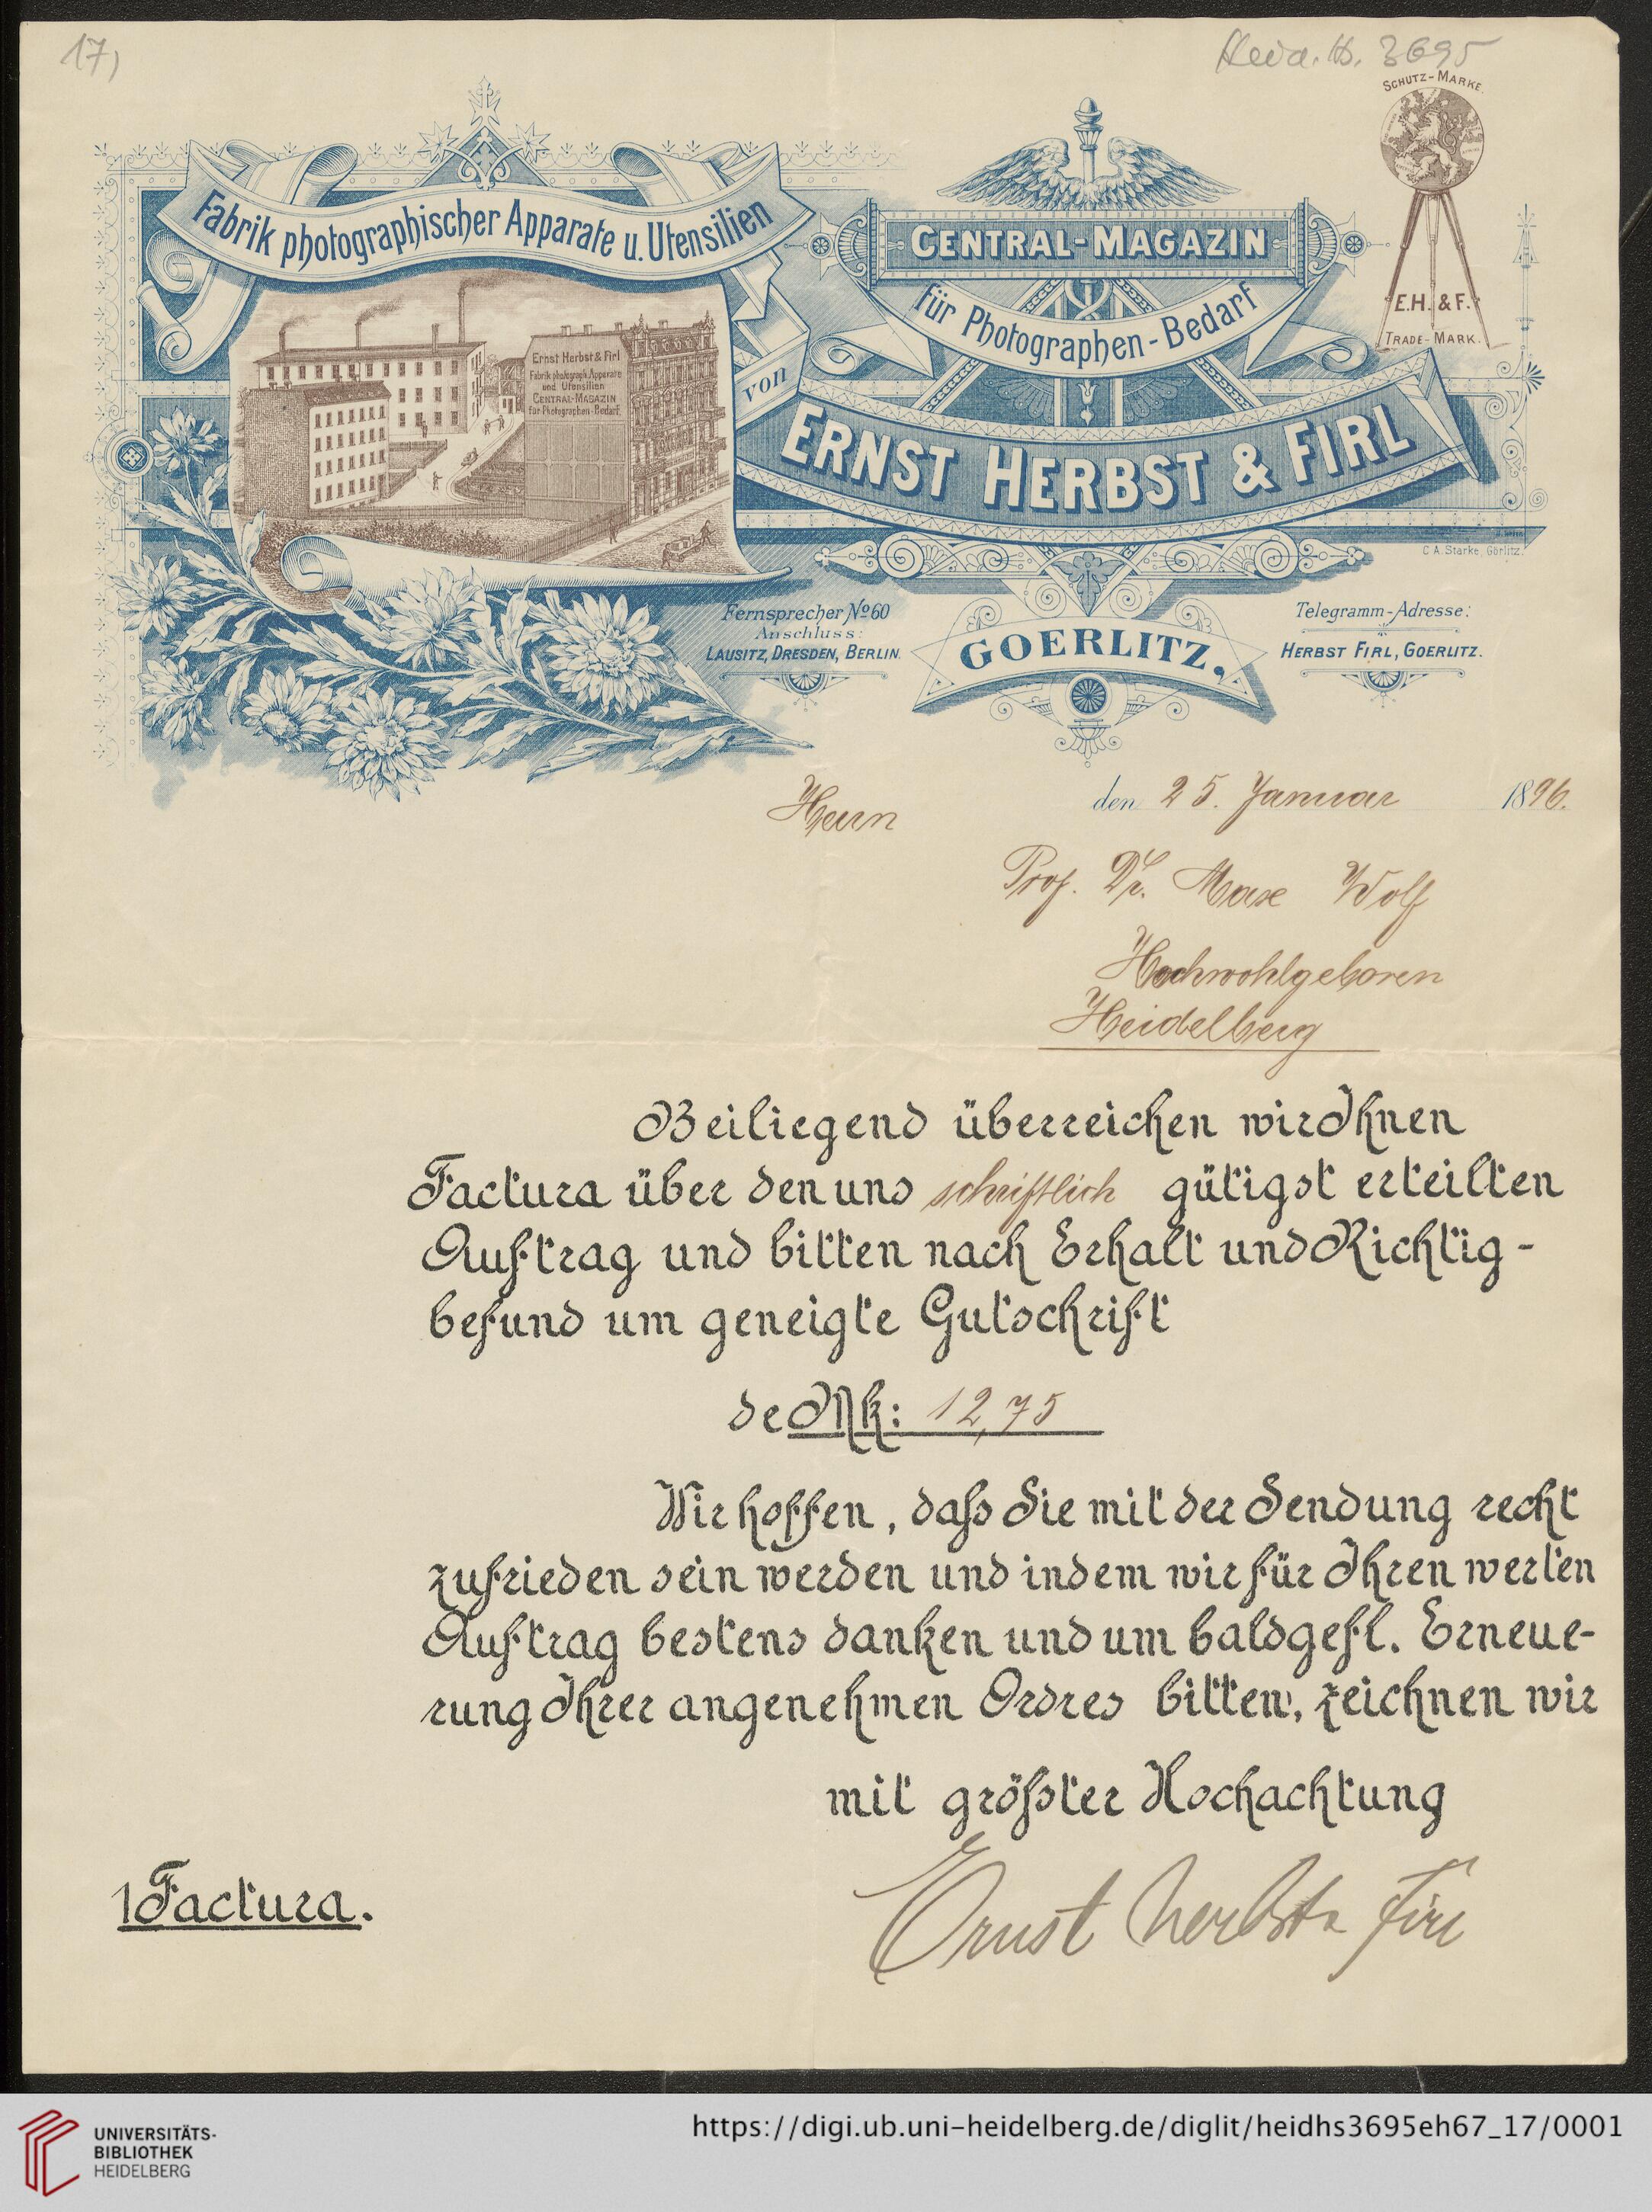 17)
Heid. Hs. 3695
SCHUTZ-MARKE.
E.H. & F.
TRADE-MARK.
Fabrik photographischer Apparate u. Utensilien
Ernst Herbst & Firl
Fabrik photograph. Apparate
und Utensilien
CENTRAL-MAGAZIN
für Photographen-Bedarf.
CENTRAL-MAGAZIN
für Photographen-Bedarf
von
ERNST HERBST & FIRL
C. A. Starke, Görlitz.
Fernsprecher No 60
Anschluss:
LAUSITZ, DRESDEN, BERLIN.
GOERLITZ,
Telegramm-Adresse:
HERBST FIRL, GOERLITZ.
den 25. Januar 1896.
Herrn
Prof. Dr. Max Wolf
Hochwohlgeboren
Heidelberg
Beiliegend überreichen wir Ihnen
Factura über den uns schriftlich gütigst erteilten
Auftrag und bitten nach Erhalt und Richtig-
befund um geneigte Gutschrift
de Mk: 12,75
Wir hoffen, daß Sie mit der Sendung recht
zufrieden sein werden und indem wir für Ihren werten
Auftrag bestens danken und um baldgefl. Erneue-
rung Ihrer angenehmen Ordres bitten, zeichnen wir
mit größter Hochachtung
Ernst Herbst & Firl
1 Factura.
UNIVERSITÄTS-
BIBLIOTHEK
HEIDELBERG
https://digi.ub.uni-heidelberg.de/diglit/heidhs3695eh67_17/0001